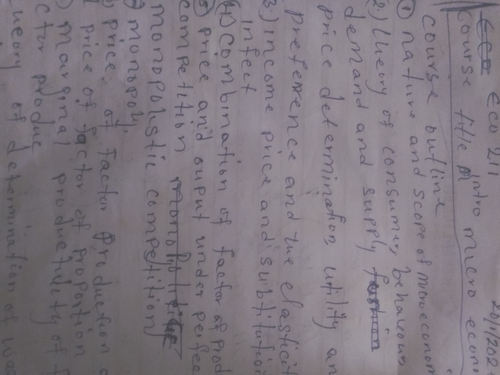 Eco ECO 211
Course title Intro micro econ
course outline
① nature and scope of
2) theory of consumer, behaviour
demand and supply
price determination utility an
preference and the elasticit
3) income price and subtitution
infect
(4) combination of factor of prod
⑤ price and ouput under perfec
competition
monopolistic competition
monopoly
price of factor production
price of factor of proportion
marginal productivity of f
ctor produc
theory of determination of